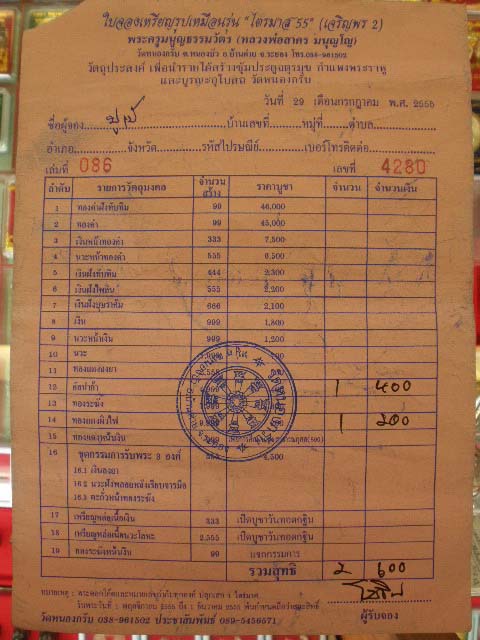 ใบจองเหรียญรูปเหมือนรุ่น "ไตรมาส 55" (เจริญพร 2)
พระครูมนูญธรรมวัตร (หลวงพ่อสาคร มนุญโญ)
วัดหนองกรับ ต.หนองบัว อ.บ้านค่าย จ.ระยอง โทร.038-961502
วัตถุประสงค์ เพื่อนำรายได้สร้างซุ้มประตูจตุรมุข กำแพงพระราหู
และบูรณะอุโบสถ วัดหนองกรับ
วันที่ 29 เดือนกรกฎาคม พ.ศ. 2555
ชื่อผู้จอง บ้านเลขที่ หมู่ที่ ตำบล
อำเภอ จังหวัด รหัสไปรษณีย์ เบอร์โทรติดต่อ
เล่มที่ 086 เลขที่ 4280
ลำดับ รายการวัตถุมงคล จำนวนสร้าง ราคาบูชา จำนวน จำนวนเงิน
1 ทองคำฝังทับทิม 99 46,000
2 ทองคำ 99 45,000
3 เงินหน้าทองคำ 333 7,500
4 นวะหน้าทองคำ 555 6,500
5 เงินฝังทับทิม 444 2,300
6 เงินฝังไพลิน 555 2,200
7 เงินฝังบุษราคัม 666 2,100
8 เงิน 999 1,800
9 นวะหน้าเงิน 999 1,200
10 นวะ
11 ทองแดงลงยา
12 อัลปาก้า 1 400
13 ทองระฆัง
14 ทองแดงผิวไฟ 1 200
15 ทองแดงหน้าเงิน
16 ชุดกรรมการรับพระ 3 องค์
16.1 เงินลงยา
16.2 นวะฝังพลอยหลังเรียบจารมือ
16.3 ตะกั่วหน้าทองระฆัง
17 เหรียญหล่อเนื้อเงิน 333 เปิดบูชาวันทอดกฐิน
18 เหรียญหล่อเนื้อนวะโลหะ 2,555 เปิดบูชาวันทอดกฐิน
19 ทองระฆังหน้าเงิน 99 แจกกรรมการ
รวมสุทธิ 2 600
รับพระวันที่ 1 พฤศจิกายน 2555 ถึง 1 ธันวาคม 2555
วัดหนองกรับ 038-961502 ประชาสัมพันธ์ 089-5456571
ผู้รับจอง